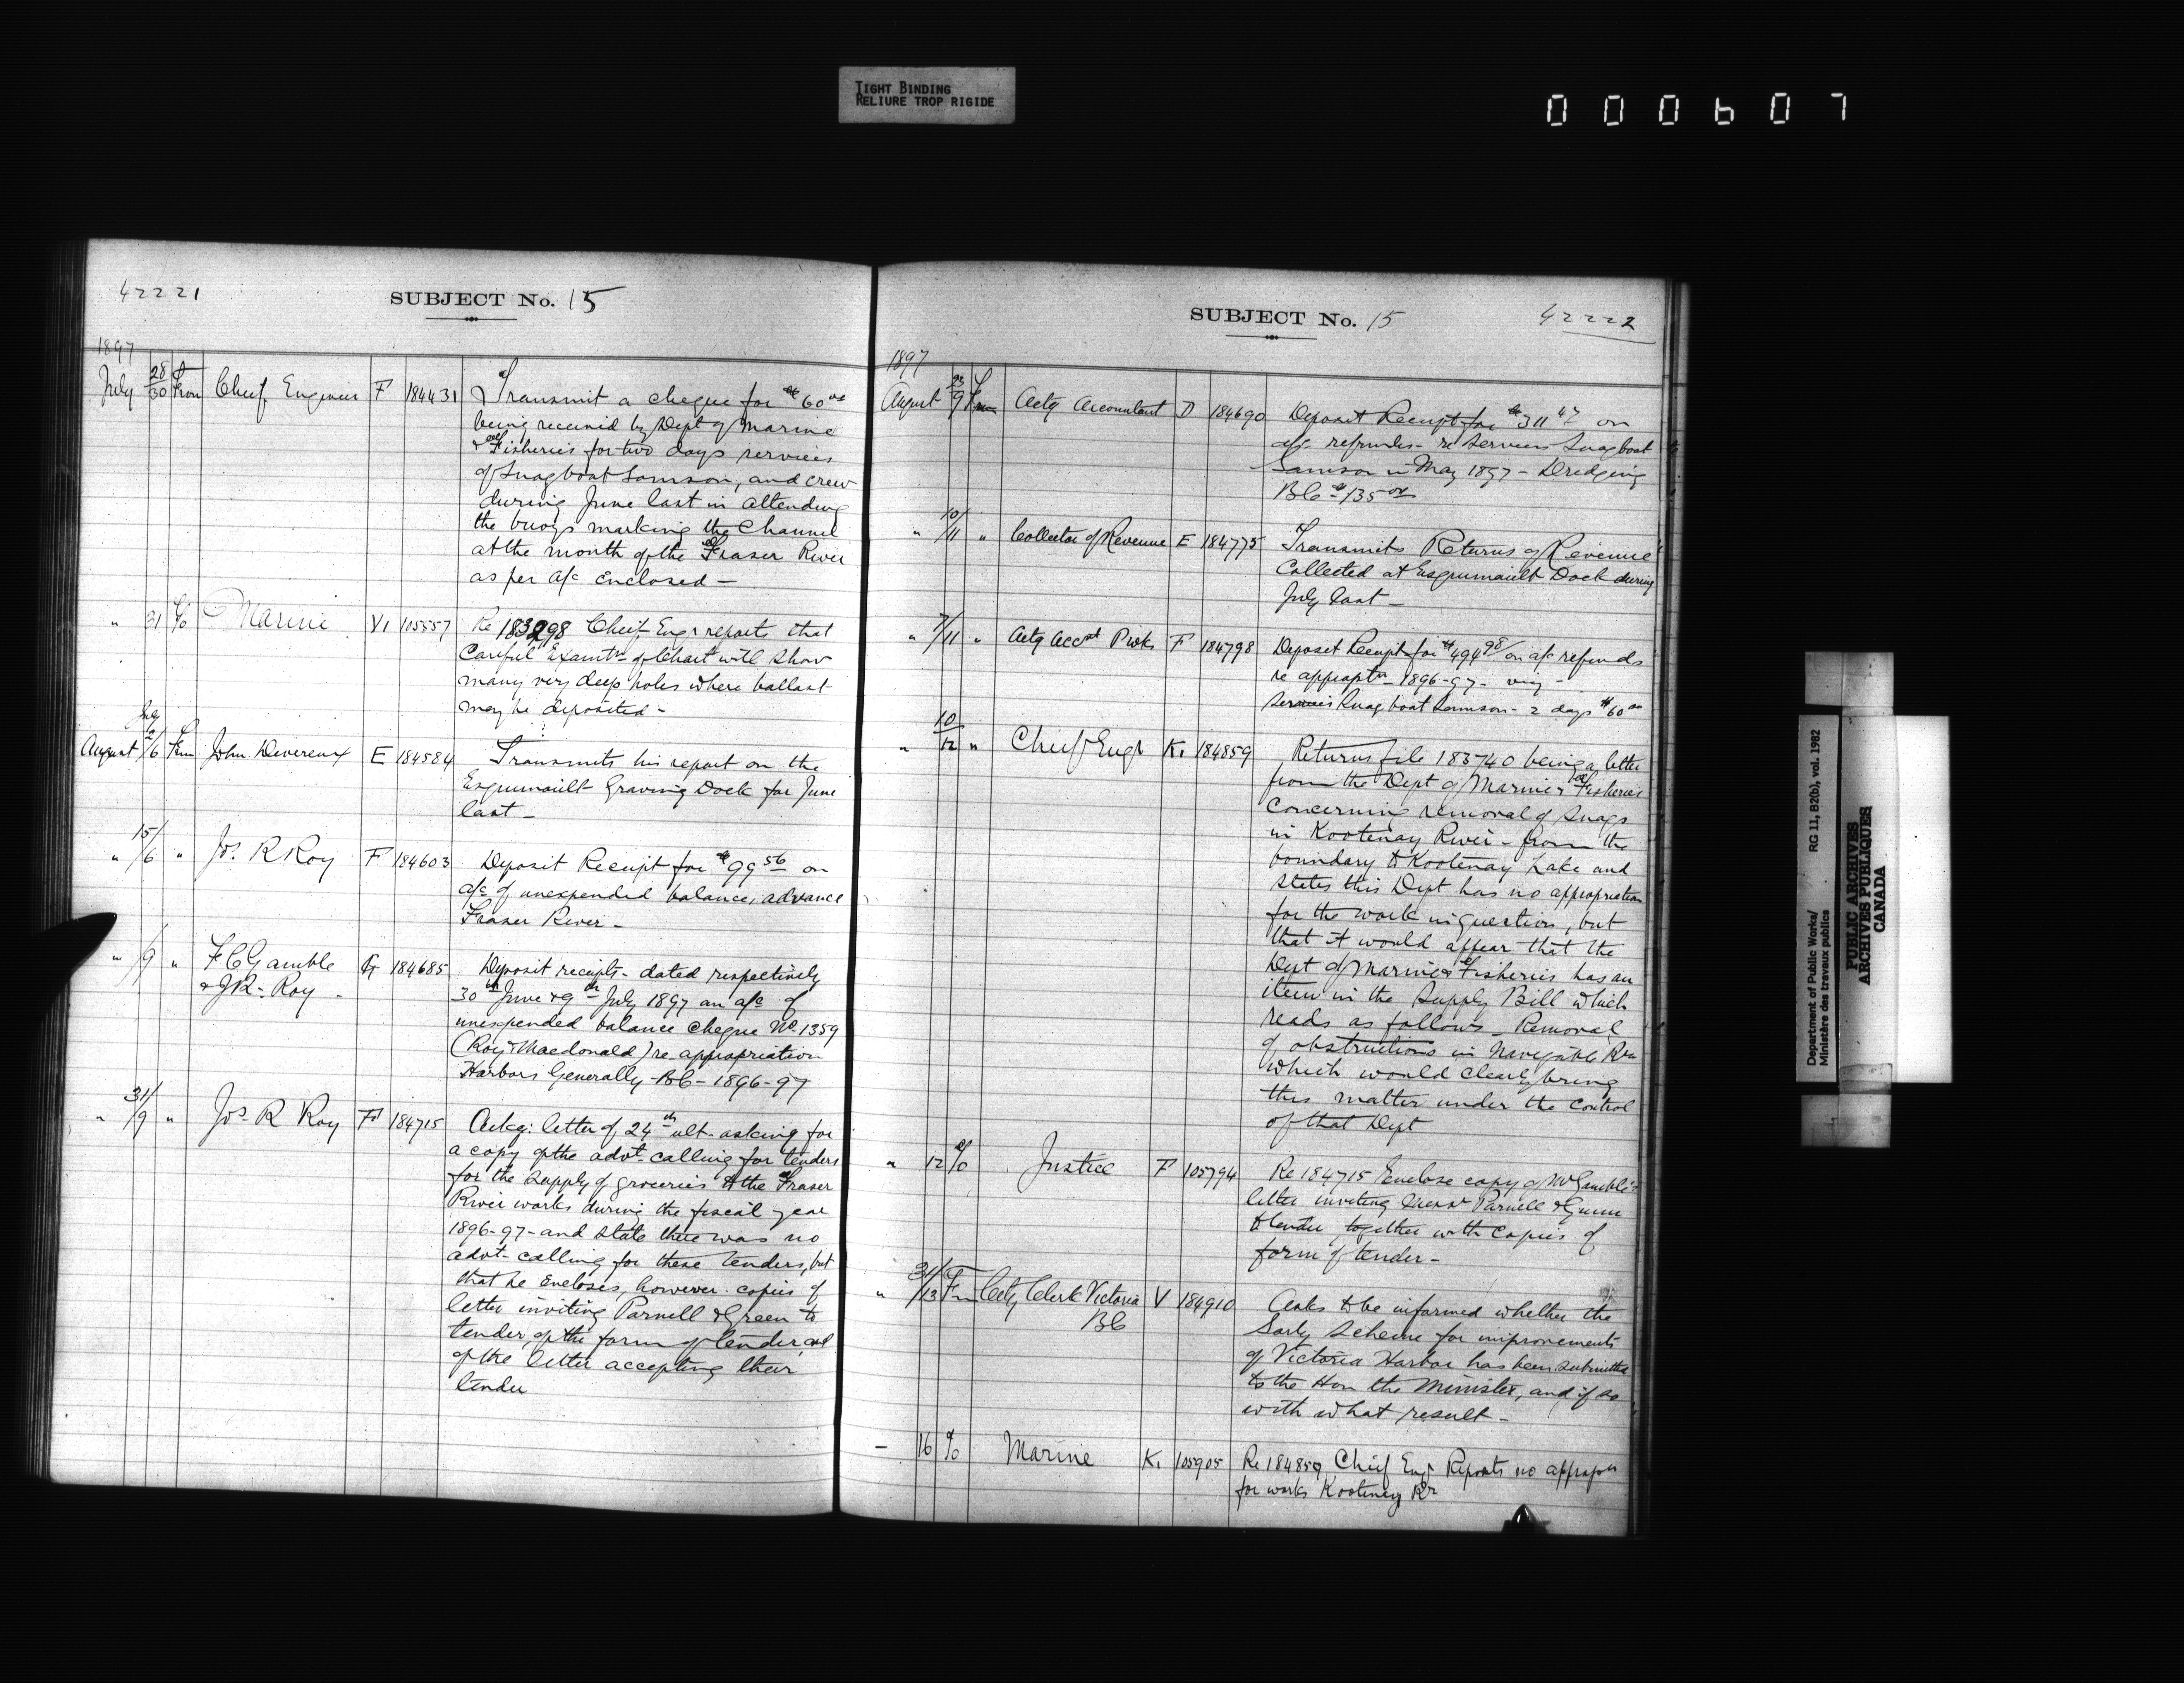 TIGHT BINDING
RELIURE TROP RIGIDE
000607
42221
SUBJECT No. 15
1897
July 28/30 From Chief Engineer F 184431 Transmit a cheque for $60.00
being received by Dept of Marine
& Fisheries for two days services
of Snagboat Samson, and crew
during June last in attending
the buoys marking the Channel
at the mouth of the Fraser River
as per a/c enclosed —
" 31 Marine V1 105557 Re 183298 Chief Engr reports that
Careful Examtn of Chart will show
many very deep holes where ballast
may be deposited -
August July 2/6 From John Devereux E 184584 Transmits his report on the
Esquimault Graving Dock for June
last —
" 15/6 " Jos. R Roy F 184603 Deposit Receipt for $99 56 on
a/c of unexpended balance, advance
Fraser River —
" /9 " F C Gamble G 184685 Deposit receipts - dated respectively
& J R. Roy - 30th June & 9th July 1897 on a/c of
unexpended balance Cheque No 1359
(Roy & Macdonald) re appropriation
Harbors Generally - BC - 1896-97
" 31/9 " Jos. R Roy F 184715 Ackg: letter of 24th ult- asking for
a copy of the advt- calling for tenders
for the supply of groceries to the Fraser
River works during the fiscal year
1896-97 - and state there was no
advt- calling for these tenders, but
that he encloses, however copies of
letter inviting Parnell & Green to
tender, of the form of tender and
of the letter accepting their
tender
SUBJECT No. 15
42222
1897
August 23/9 From Actg Accountant D 184690 Deposit Receipt for $311 47 on
a/c refunds - re Services Snagboat
Samson in May 1897 - Dredging
BC - $135 00
" 10/11 " Collector of Revenue E 184775 Transmits Returns of Revenue
Collected at Esquimault Dock during
July last —
" 7/11 " Actg Acct P Wks F 184798 Deposit Receipt for $494 98/ on a/c refunds
re approptn 1896-97 -
Services Snag boat Samson - 2 days $60 00
" 10/12 " Chief Engr K1 184859 Returns file 183740 being a letter
from the Dept of Marine & Fisheries
concerning removal of Snags
in Kootenay River - from the
boundary to Kootenay Lake and
states this Dept has no appropriation
for the work in question, but
that it would appear that the
Dept of Marine & Fisheries has an
item in the Supply Bill which
reads as follows - Removal
of obstructions in Navigable Rrs
which would clearly bring
this matter under the control
of that Dept
" 12 Justice F 105794 Re 184715 Enclose copy of Mr Gamble's
letter inviting Messrs Parnell & Gunn
to tender together with copies of
form of tender -
" 31/13 Fm City Clerk Victoria V 184910 Asks to be informed whether the
BC Sorby Scheme for improvements
of Victoria Harbor has been submitted
to the Hon the Minister, and if so
with what result -
— 16 Marine K1 105905 Re 184859 Chief Engr Reports no appropn
for works Kootenay Rr
Department of Public Works/ RG 11, B2(b), vol. 1982
Ministère des travaux publics
PUBLIC ARCHIVES
ARCHIVES PUBLIQUES
CANADA